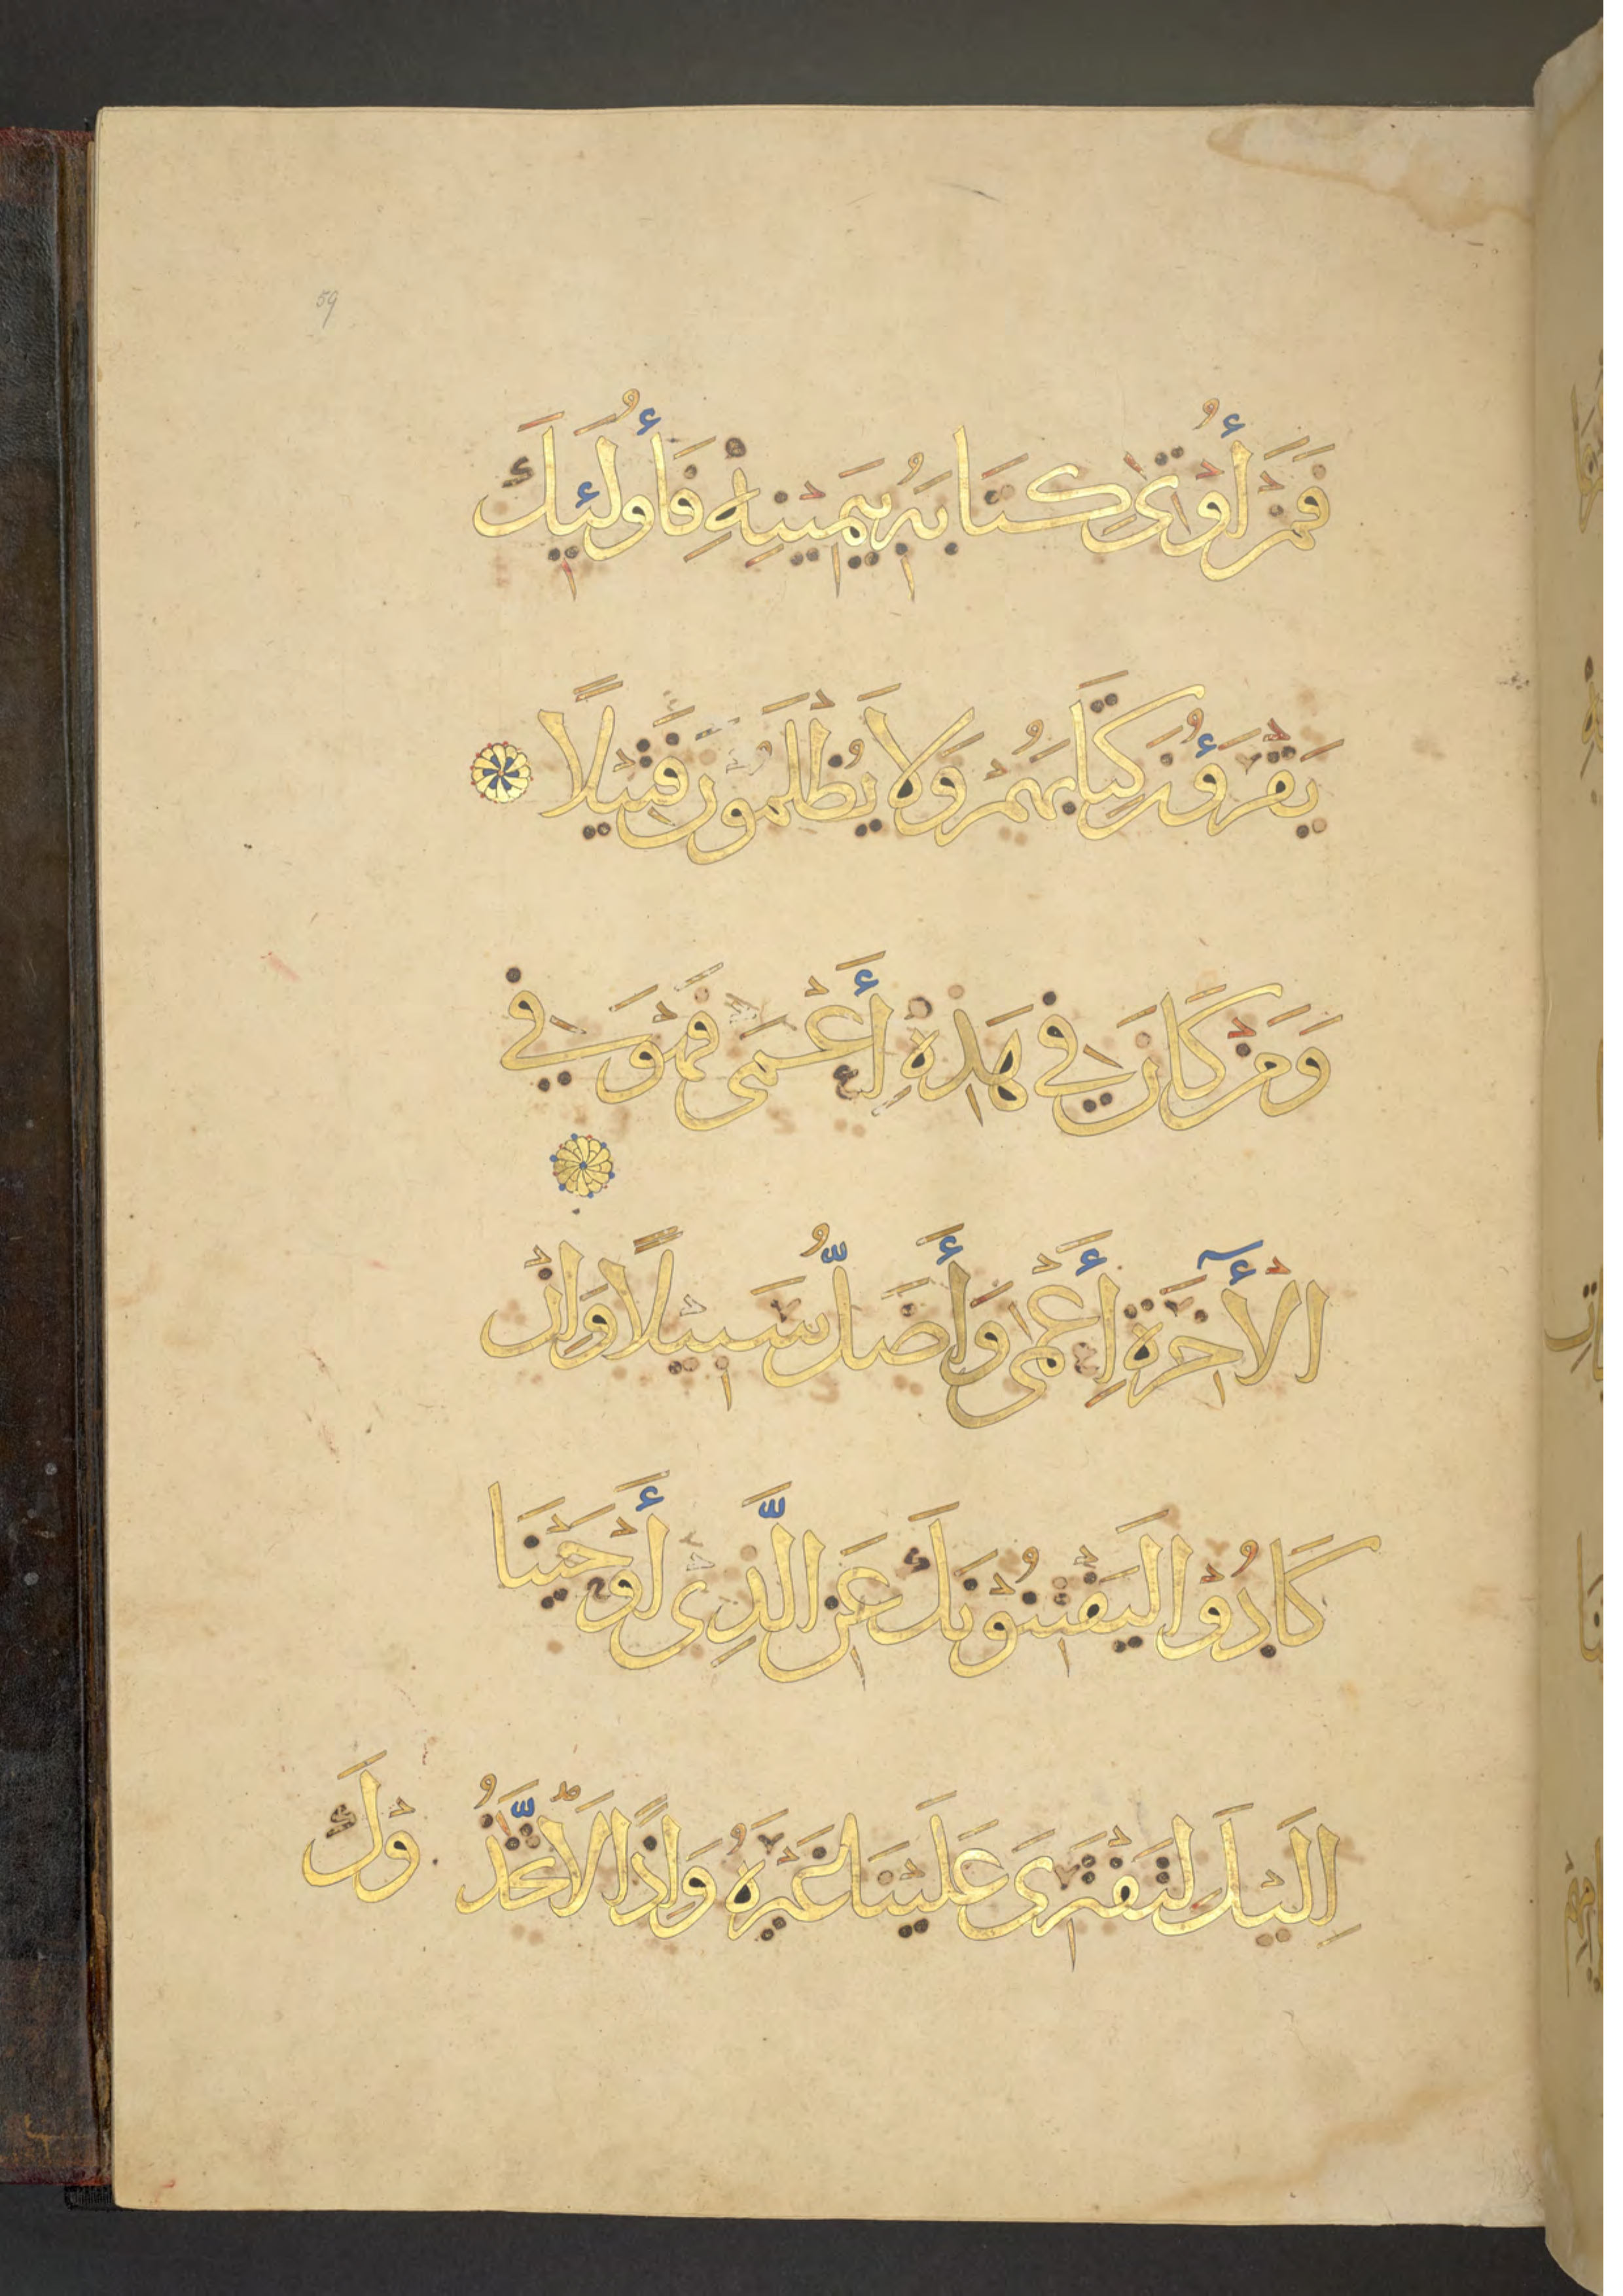 59
فَمَنْ أُوْتِىَ كِتَابَهُ بِيَمِيْنِهِ فَأُولَئِكَ
يَقْرَءُوْنَ كِتَابَهُمْ وَلَا يُظْلَمُوْنَ فَتِيْلًا
وَمَنْ كَانَ فِي هَذِهِ أَعْمَى فَهُوَ فِي
الْأٓخِرَةِ أَعْمَى وَأَضَلُّ سَبِيْلًا وَاِنْ
كَادُوْا لَيَفْتِنُوْنَكَ عَنِ الَّذِى أَوْحَيْنَا
اِلَيْكَ لِتَفْتَرِىَ عَلَيْنَا غَيْرَهُ وَاِذًا لَاتَّخَذُ
وْكَ